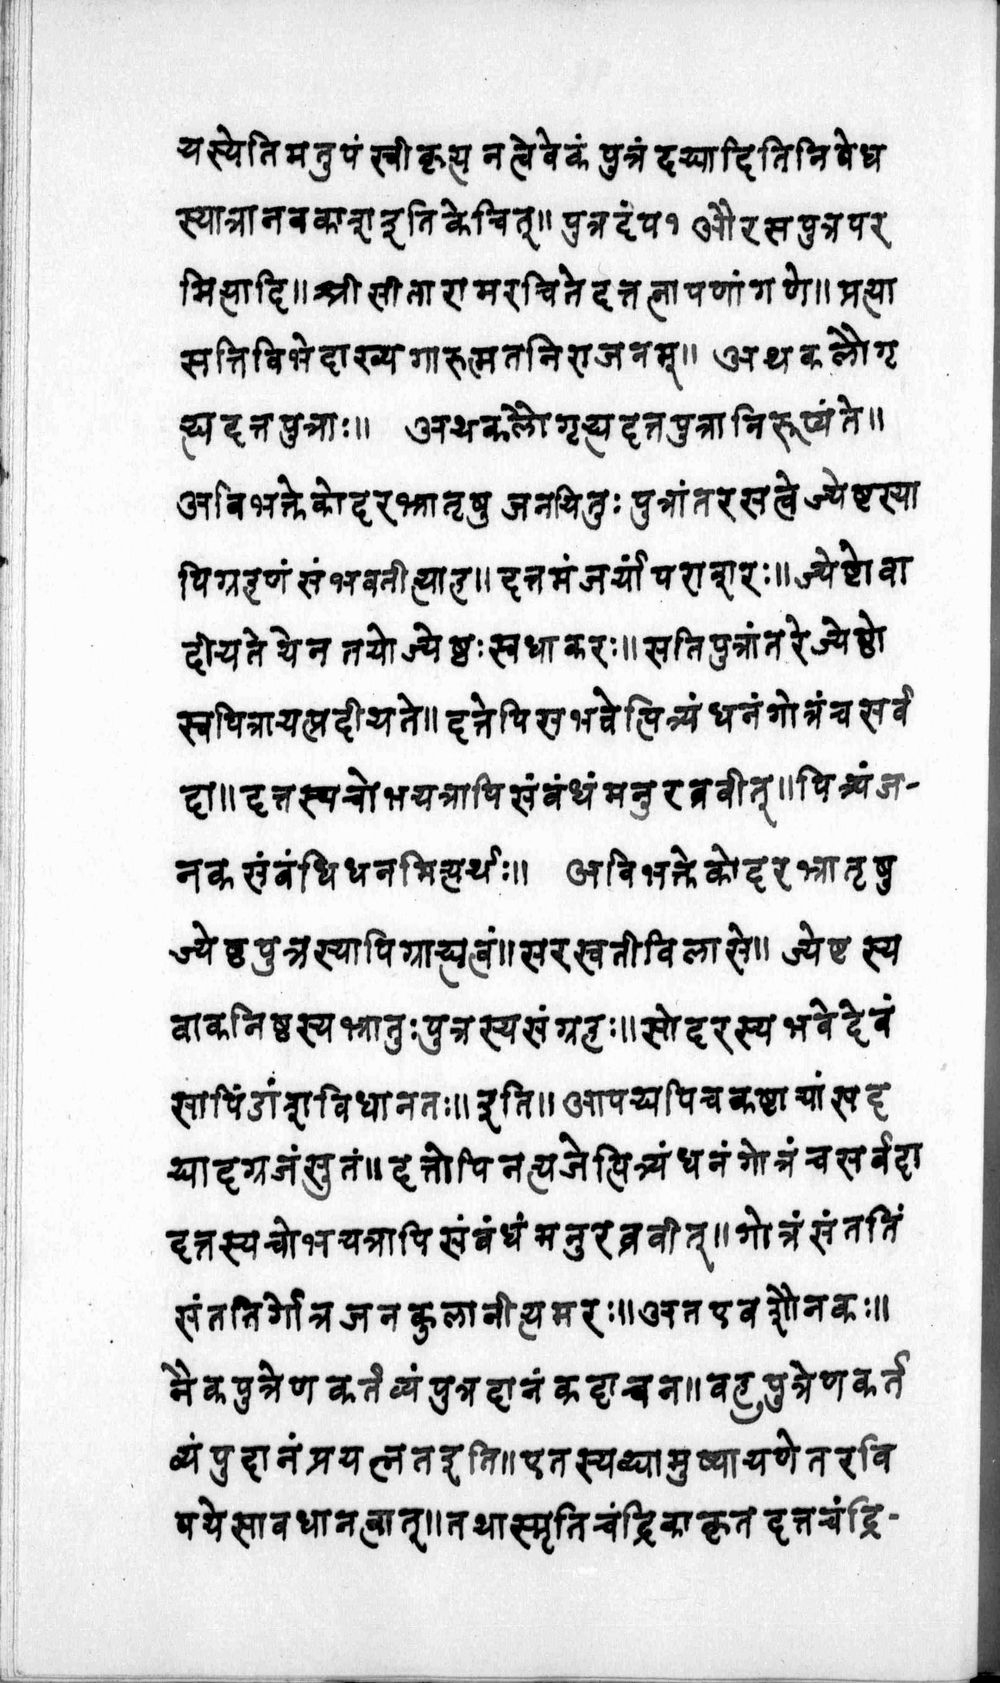 यस्येतिमनुपं स्वीकृत्य नत्वेवेकं पुत्रं दद्यादितिनिषेध
स्यात्रानवकाशइतिकेचित्॥ पुत्रदंप१ औरसपुत्रपर
मित्यादि॥ श्री सीतारामरचिते दत्तत्नापणांगणे॥ प्रत्या
सत्तिविभेदाख्यगारुत्मतनिराजनम्॥ अथकलौगृ
ह्यदत्तपुत्राः॥ अथकलौगृह्यदत्तपुत्रानिरूप्यंते॥
अविभक्तेकोदरभ्रातृषु जनयितुः पुत्रांतरसत्वेज्येष्टस्या
पिग्रहणं संभवतीत्याह॥ दत्तमंजर्यां पराशरः॥ ज्येष्टोवा
दीयते येन तयोर्ज्येष्ठः स्वधाकरः॥ सतिपुत्रांतरेज्येष्ठो
स्वपित्रायत्प्रदीयते॥ दत्तेपिसभवेत्पित्र्यं धनंगोत्रंचसर्व
दा॥ दत्तस्यचोभयत्रापिसंबंधं मनुरब्रवीत्॥ पित्र्यंज-
नकसंबंधिधनमित्यर्थः॥ अविभक्तेकोदरभ्रातृषु
ज्येष्ठपुत्रस्यापिग्राह्यत्वं॥ सरस्वतीविलासे॥ ज्येष्टस्य
वाकनिष्ठस्यभ्रातुः पुत्रस्यसंग्रहः॥ सोदरस्यभवेदेवं
सापिंडांशविधानतः॥ इति॥ आपद्यपिचकष्टायांसद
द्यादग्रजंसुतं॥ दत्तोपिनत्यजेत्पित्र्यंधनंगोत्रंचसर्वदा
दत्तस्यचोभयत्रापिसंबंधं मनुरब्रवीत्॥ गोत्रंसंततिं
संततिर्गोत्रजनकुलानीत्यमरः॥ अतएवशौनकः॥
नैकपुत्रेणकर्तव्यंपुत्रदानंकदाचन॥ बहुपुत्रेणकर्त
व्यंपुदानंप्रयत्नतइति॥ एतस्यद्यामुष्यायणेतरवि
षयेसावधानत्वात्॥ तथास्मृतिचंद्रिकाकृतदत्तचंद्रि-